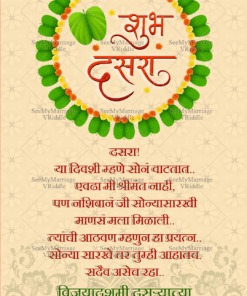 शुभ
दसरा
SeeMyMarriage
VRiddle
SeeMyMarriage
VRiddle
दसरा!
या दिवशी म्हणे सोनं वाटतात..
एवढा मी श्रीमंत नाही,
पण नशिबानं जी सोन्यासारखी
माणसं मला मिळाली..
त्यांची आठवण म्हणुन हा प्रयत्न..
सोन्या सारखे तर तुम्ही आहातच,
सदैव असेच रहा..
विजयादशमी दसऱ्याच्या